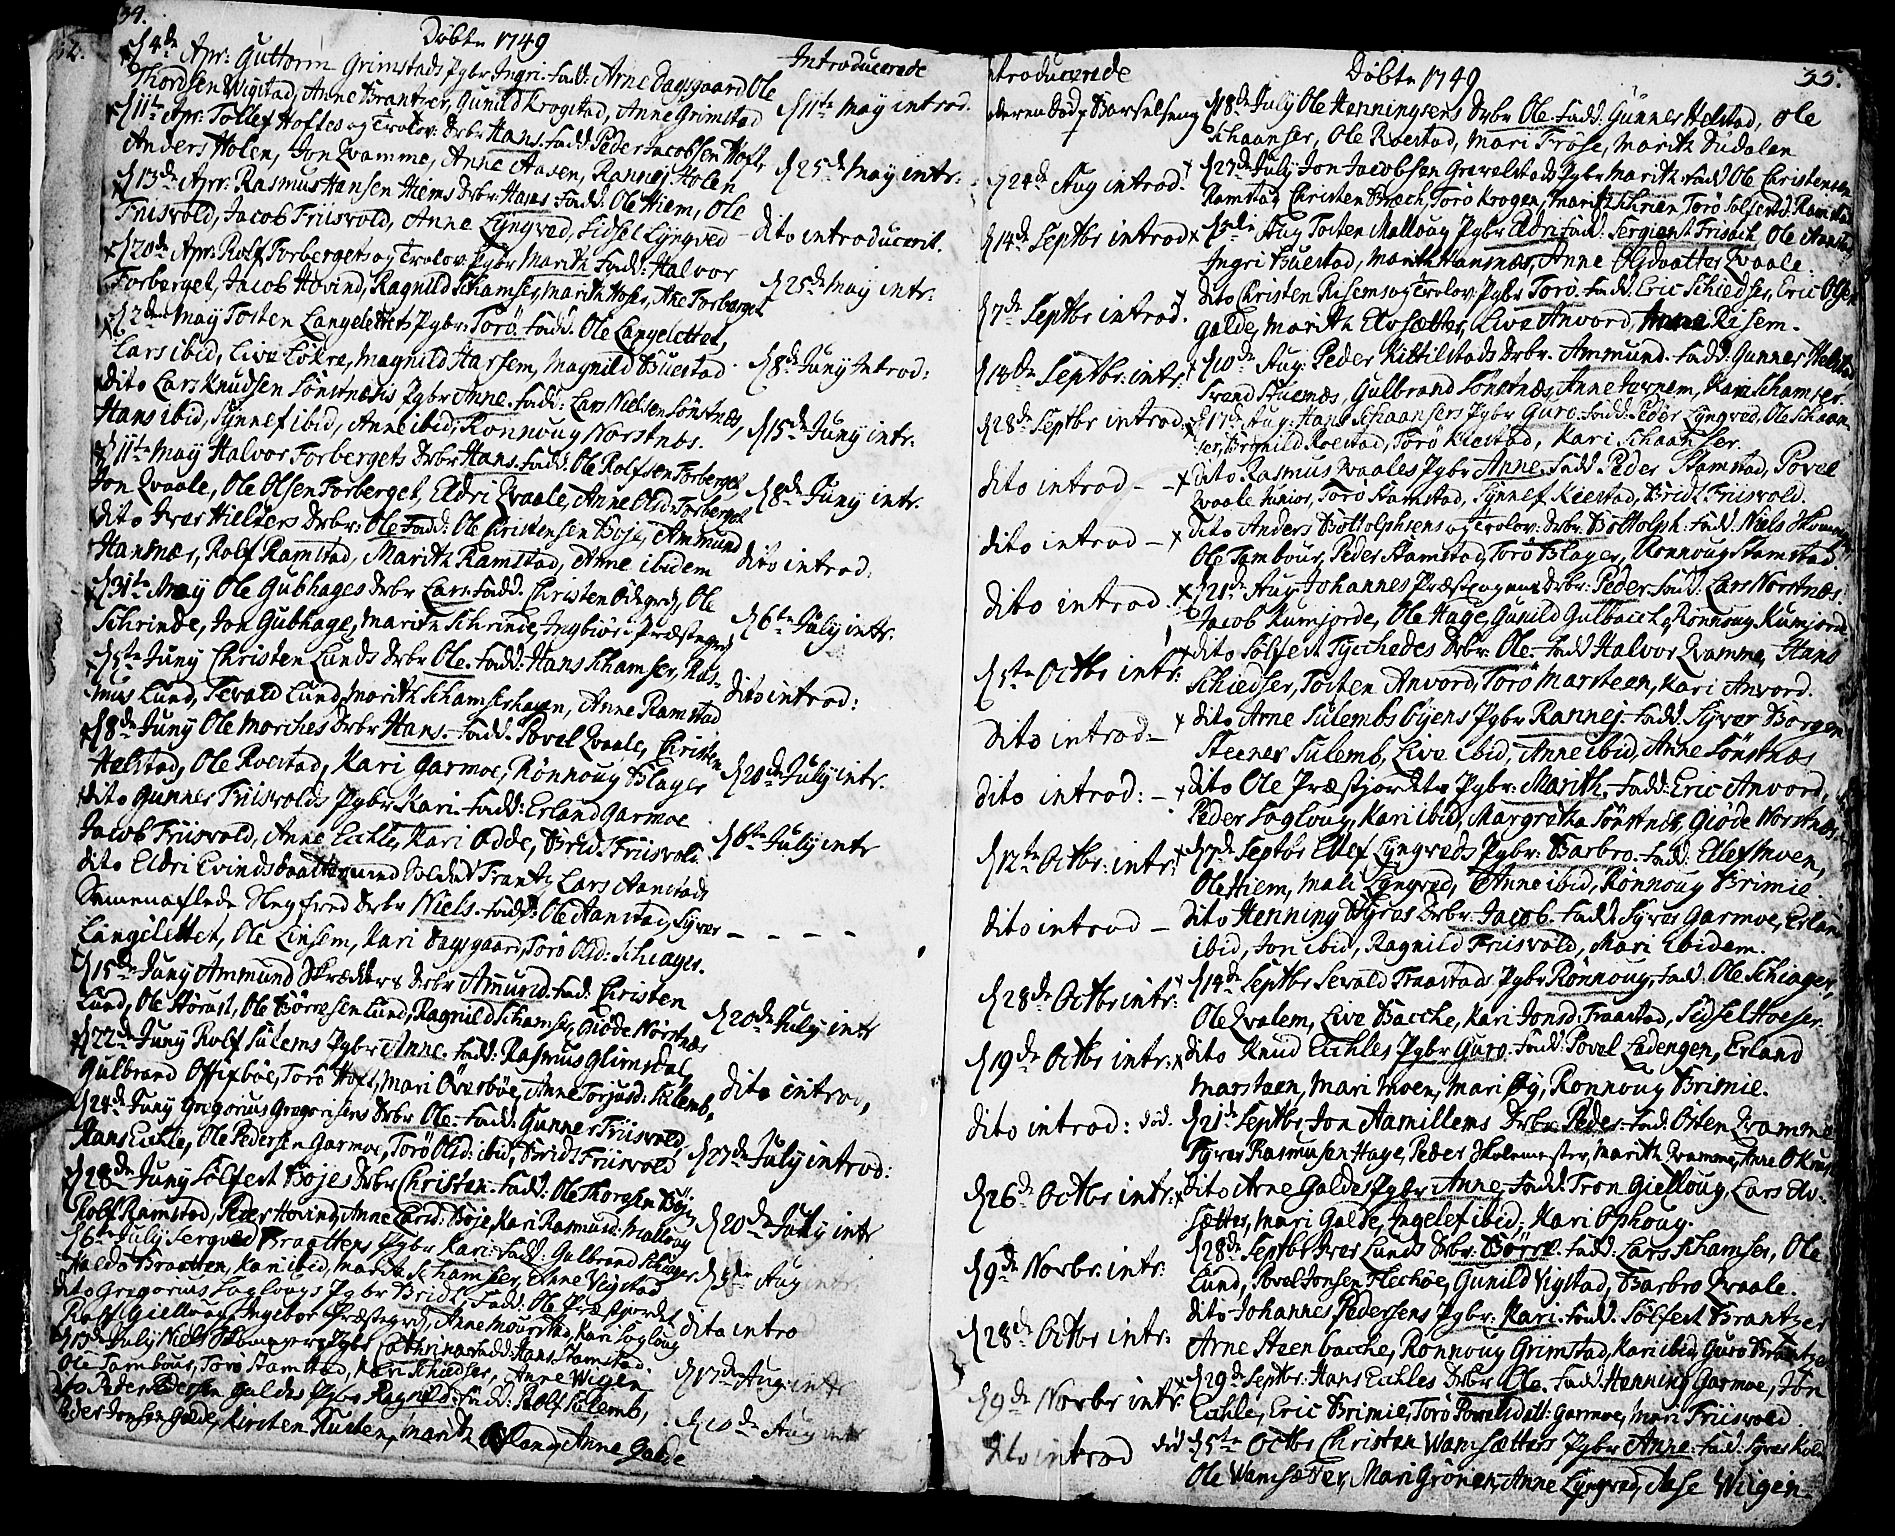 34.
Døbte 1749
Introducerede
d 4de Apr: Guttorm Grimstads Pgbr Ingri. Fadd: Arne Dagsgaard Ole
Thordsen Wigstad, Anne Brantzer, Gunild Krogstad, Anne Grimstad
d 11te May introd.
d 11te Apr: Tollef Hoftes og Trolov: Drbr Hans. Fadd: Peder Jacobsen Hoft,
Anders Holen, Jon Qvamme, Anne Aasen, Rannej Holen
d 25de May intr:
d 13de Apr: Rasmus Hansen Hiems Drbr Hans. Fadd: Ole Hiem, Ole
Friisvold, Jacob Friisvold, Anne Lyngved, Sidsel Lyngved
dito introducerit.
d 20de Apr: Rolf Forbergets og Trolov: Pgbr Marith Fadd: Halvor
Forberget, Jacob Hovind, Ragnild Schamser, Marith Hofer, Ane Forberget
d 25de May intr:
d 2de May Torsten Langelettets Pgbr: Torø. Fadd: Ole Langelettet,
Lars ibid, Live Løkre, Magnild Harsem, Magnild Buestad
d 8de Juny Introd:
dito Lars Knudsen Sønstnæsis Pgbr Anne. Fadd: Lars Nielsen Sønstnæs,
Hans ibid, Synnef ibid, Anne ibid, Ronnoug Norstnæs.
d 15de Juny intr:
d 11te May Halvor Forbergets Drbr Hans. Fadd: Ole Rolfsen Forberget
Jon Qvaale, Ole Olsen Forberget, Eldri Qvaale, Anne Olsd Forberget
d 8de Juny intr.
dito Iver Hielsers Drbr: Ole Fadd: Ole Christensen Bøje, Ammund
Hansnæs, Rolf Ramstad, Marith Ramstad, Anne ibidem
dito introd.
d 31te May Ole Gubhages Drbr Lars. Fadd. Christen Ødegrd, Ole
Schrinde, Jon Gubhage, Marith Schrinde, Ingbiør Præstegrd
d 6te July intr.
d 5te Juny Christen Lunds Drbr Ole. Fadd: Hans Schamser, Ras-
mus Lund, Tevald Lund, Marith Schamserhagen, Anne Ramstad
dito introd:
d 8de Juny Ole Morches Drbr Hans. Fadd. Povel Qvaale, Christen
Helstad, Ole Roestad, Kari Garmoe, Rønnoug Blager
d 20de July intr.
dito Gunner Friisvolds Pgbr Kari. Fadd: Erland Garmoe
Jacob Friisvold, Anne Eichle, Kari Odde, Bridt Friisvold.
d 6te July intr
dito Eldri Evindsdaatter med Soldat Frantz Lars Aanstads
Sammenaflede Slegfred Drbr Niels. Fadd: Ole Aanstad, Syver
Langelettet, Ole Linsem, Kari Dagsgaard, Torø Olsd: Schiager.
d 15de Juny Ammund Skrædders Drbr Amund. Fad: Christen
Lund, Ole Storast, Ole Børresen Lund, Ragnild Schamser, Giøde Norstnæs
d 20de July intr
d 22de Juny Rolf Sulems Pgbr Anne. Fadd: Rasmus Glimsdal,
Gulbrand Offigsbøe, Torø Hoft, Mari Øversbøe, Anne Torjusd: Sulemb.
dito introd,
d 24de Juny Gregorius Gregorisens Drbr Ole. Fadd: Gunner Friisvold,
Hans Eichle, Ole Pedersen Garmoe, Torø Olsd: ibid, Bridt Friisvold
d 27de July introd:
d 28de Juny Sølfest Bøjes Drbr Christen. Fadd: Ole Thorgsen Bøje
Rolf Ramstad, Peder Hoving, Anne Larsd: Bøje, Kari Rasmusd: Mallang
d 20de July intr
d 6te July Serqved Braattens Pgbr Kari. Fadd: Gulbrand Schiager,
Haldo Braatten, Kari ibid, Marith Schamser, Anne Vigstad
d 3de Aug intr:
dito Gregorius Soglougs Pgbr Bridt, Fadd: Ole Præstjordet
Rolf Gielloug, Ingebor Præstegrd, Anne Mourstad, Kari Sogloug
dito intro
d 13de July Niels Skomagers Pgbr Cathrina Fadd: Hans Stamstad.
Ole Tambour, Torø Stamstad, Kari Schiedser, Anne Wigen
d 17de Aug: intr
dito Peder Pedersen Galdes Pgbr Ragnild. Fadd: Rolf Sulemb,
Peder Jonsen Galde, Kirsten Rusten, Marith Øyland, Anne Galde
d 10de Aug intr
35.
Introducerede
Døbte 1749
Moderen død i Barselseng
d 18de July Ole Henningsens Drbr Ole. Fadd: Gunner Helstad, Ole
Schaanser, Ole Roestad, Mari Frøse, Marith Dudalen
d 24de Aug introd:
d 27de July Jon Jacobsen Grevelstads Pgbr Marith. Fadd Ole Christensen
Ramstad Christen Bræch, Torø Krogen, Marith Schrien, Torø Solfestd. Ramstad
d 14de Septbr introd
d 3de Aug Tosten Malloug Pgbr Eldri Fadd: Sergient Friisach, Ole Aanstad
Ingri Buestad, Marith Hansnæs, Anne Olsdaatter Qvaale.
d 7de Septbr introd.
dito Christen Risems og Trolov: Pgbr Torø. Fadd. Eric Schiedser, Eric Olsen
Galde, Marith Elvsætter, Live Anvord, Anne Risem.
d 14de Septbr: intr.
d 10de Aug: Peder Kittilstads Drbr. Ammund. Fadd: Gunner Helstad,
Svend Stuenæs, Gulbrand Sønstnæs, Anne Jarnem, Kari Schamser.
d 28de Septbr introd.
d 17de Aug: Hans Schaansers Pgbr Guro. Fadd: Peder Lyngved, Ole Schaan-
ser, Brynild Roestad, Torø Kiestad, Kari Schaanser.
dito introd
dito Rasmus Qvaales Pgbr Anne. Fadd Peder Stamstad, Povel
Qvaale Junior, Torø Stamstad, Synnef Kiestad, Bridt Friisvold.
dito introd
dito Anders Bottolphsens og Trolov: Drbr: Bottolph: Fadd. Niels Skomager,
Ole Tambour, Peder Stamstad, Torø Blager, Ronnoug Stamstad.
dito introd.
d 21de Aug Johannes Præstegrens Drbr: Peder Fadd. Lars Norstnæs.
Jacob Rumjorde, Ole Hage, Gunild Gulbache, Rønnoug Rumjord
d 5te Octbr intr:
dito Sølfest Tycchedes Drbr: Ole. Fadd Halvor Qvamme, Hans
Schiedser, Tosten Anvord, Torø Marsteen, Kari Anvord.
dito introd
dito Arne Sulembs byens Pgbr Rannej. Fadd. Syver Borgen
Steener Sulemb, Live ibid, Anne ibid, Anne Sønstnæs
dito introd:
dito Ole Præstjordets Pgbr: Marith. Fadd: Eric Anvord,
Peder Sogloug, Kari ibid, Margretha Sønstnæs, Giøde Norstnæs.
d 12te Octbr: intr:
d 7de Septbr Ellef Lyngveds Pgbr: Barbro. Fadd. Ellef Moen,
Ole Hiem, Mali Lyngved, Anne ibid, Rønnoug Brimie
dito introd
dito Henning Byres Drbr: Jacob. Fadd. Syver Garmoe, Erland
ibid, Jon ibid, Ragnild Friisvold, Mari Ibidem.
d 28de Octbr intr:
d 14de Septbr Sevald Traastads Pgbr Rønnoug. Fadd: Ole Schiager,
Ole Qvalem, Live Bacche, Kari Jonsd: Traastad, Sidsel Hoeser.
d 19de Octbr intr:
dito Knud Eichles Pgbr Guro. Fadd: Povel Ladengen, Erland
Marsteen, Mari Moen, Mari Øy, Ronnoug Brimie.
dito introd: død.
d 21de Septbr Jon Aamillems Drbr Peder. Fad. Østen Qvamme
Syver Rasmusen Hage, Peder Skolemester, Marith Qvamme, Anne
d 26de Octbr intr:
dito Arne Galdes Pgbr Anne. Fadd: Tron Gielloug, Lars Elv-
sætter, Mari Galde, Ingelef ibid, Kari Ophoug.
d 9de Norbr: intr:
d 28de Septbr Iver Lunds Drbr: Børre. Fadd. Lars Schamser, Ole
Lund, Povel Jonsen Flechøe, Gunild Vigstad, Barbro Qvaale.
d 28de Octbr intr:
dito Johannes Pedersens Pgbr: Kari. Fadd. Sølfest Brantzer
Arne Steenbacche, Rønnoug Grimstad, Kari ibid, Guro Brantzer
d 9de Novbr intr
d 29de Septbr: Hans Eichles Drbr Ole. Fadd Henning Garmoe, Jon
Eichle, Eric Brimie, Torø Povelsdatt: Garmoe, Mari Friisvold.
dito introd død
d 5te Octbr Christen Wamsætters Pgbr Anne. Fad: Syver Kold
Ole Wamsætter, Mari Grønen, Anne Lyngved, Aase Wigen